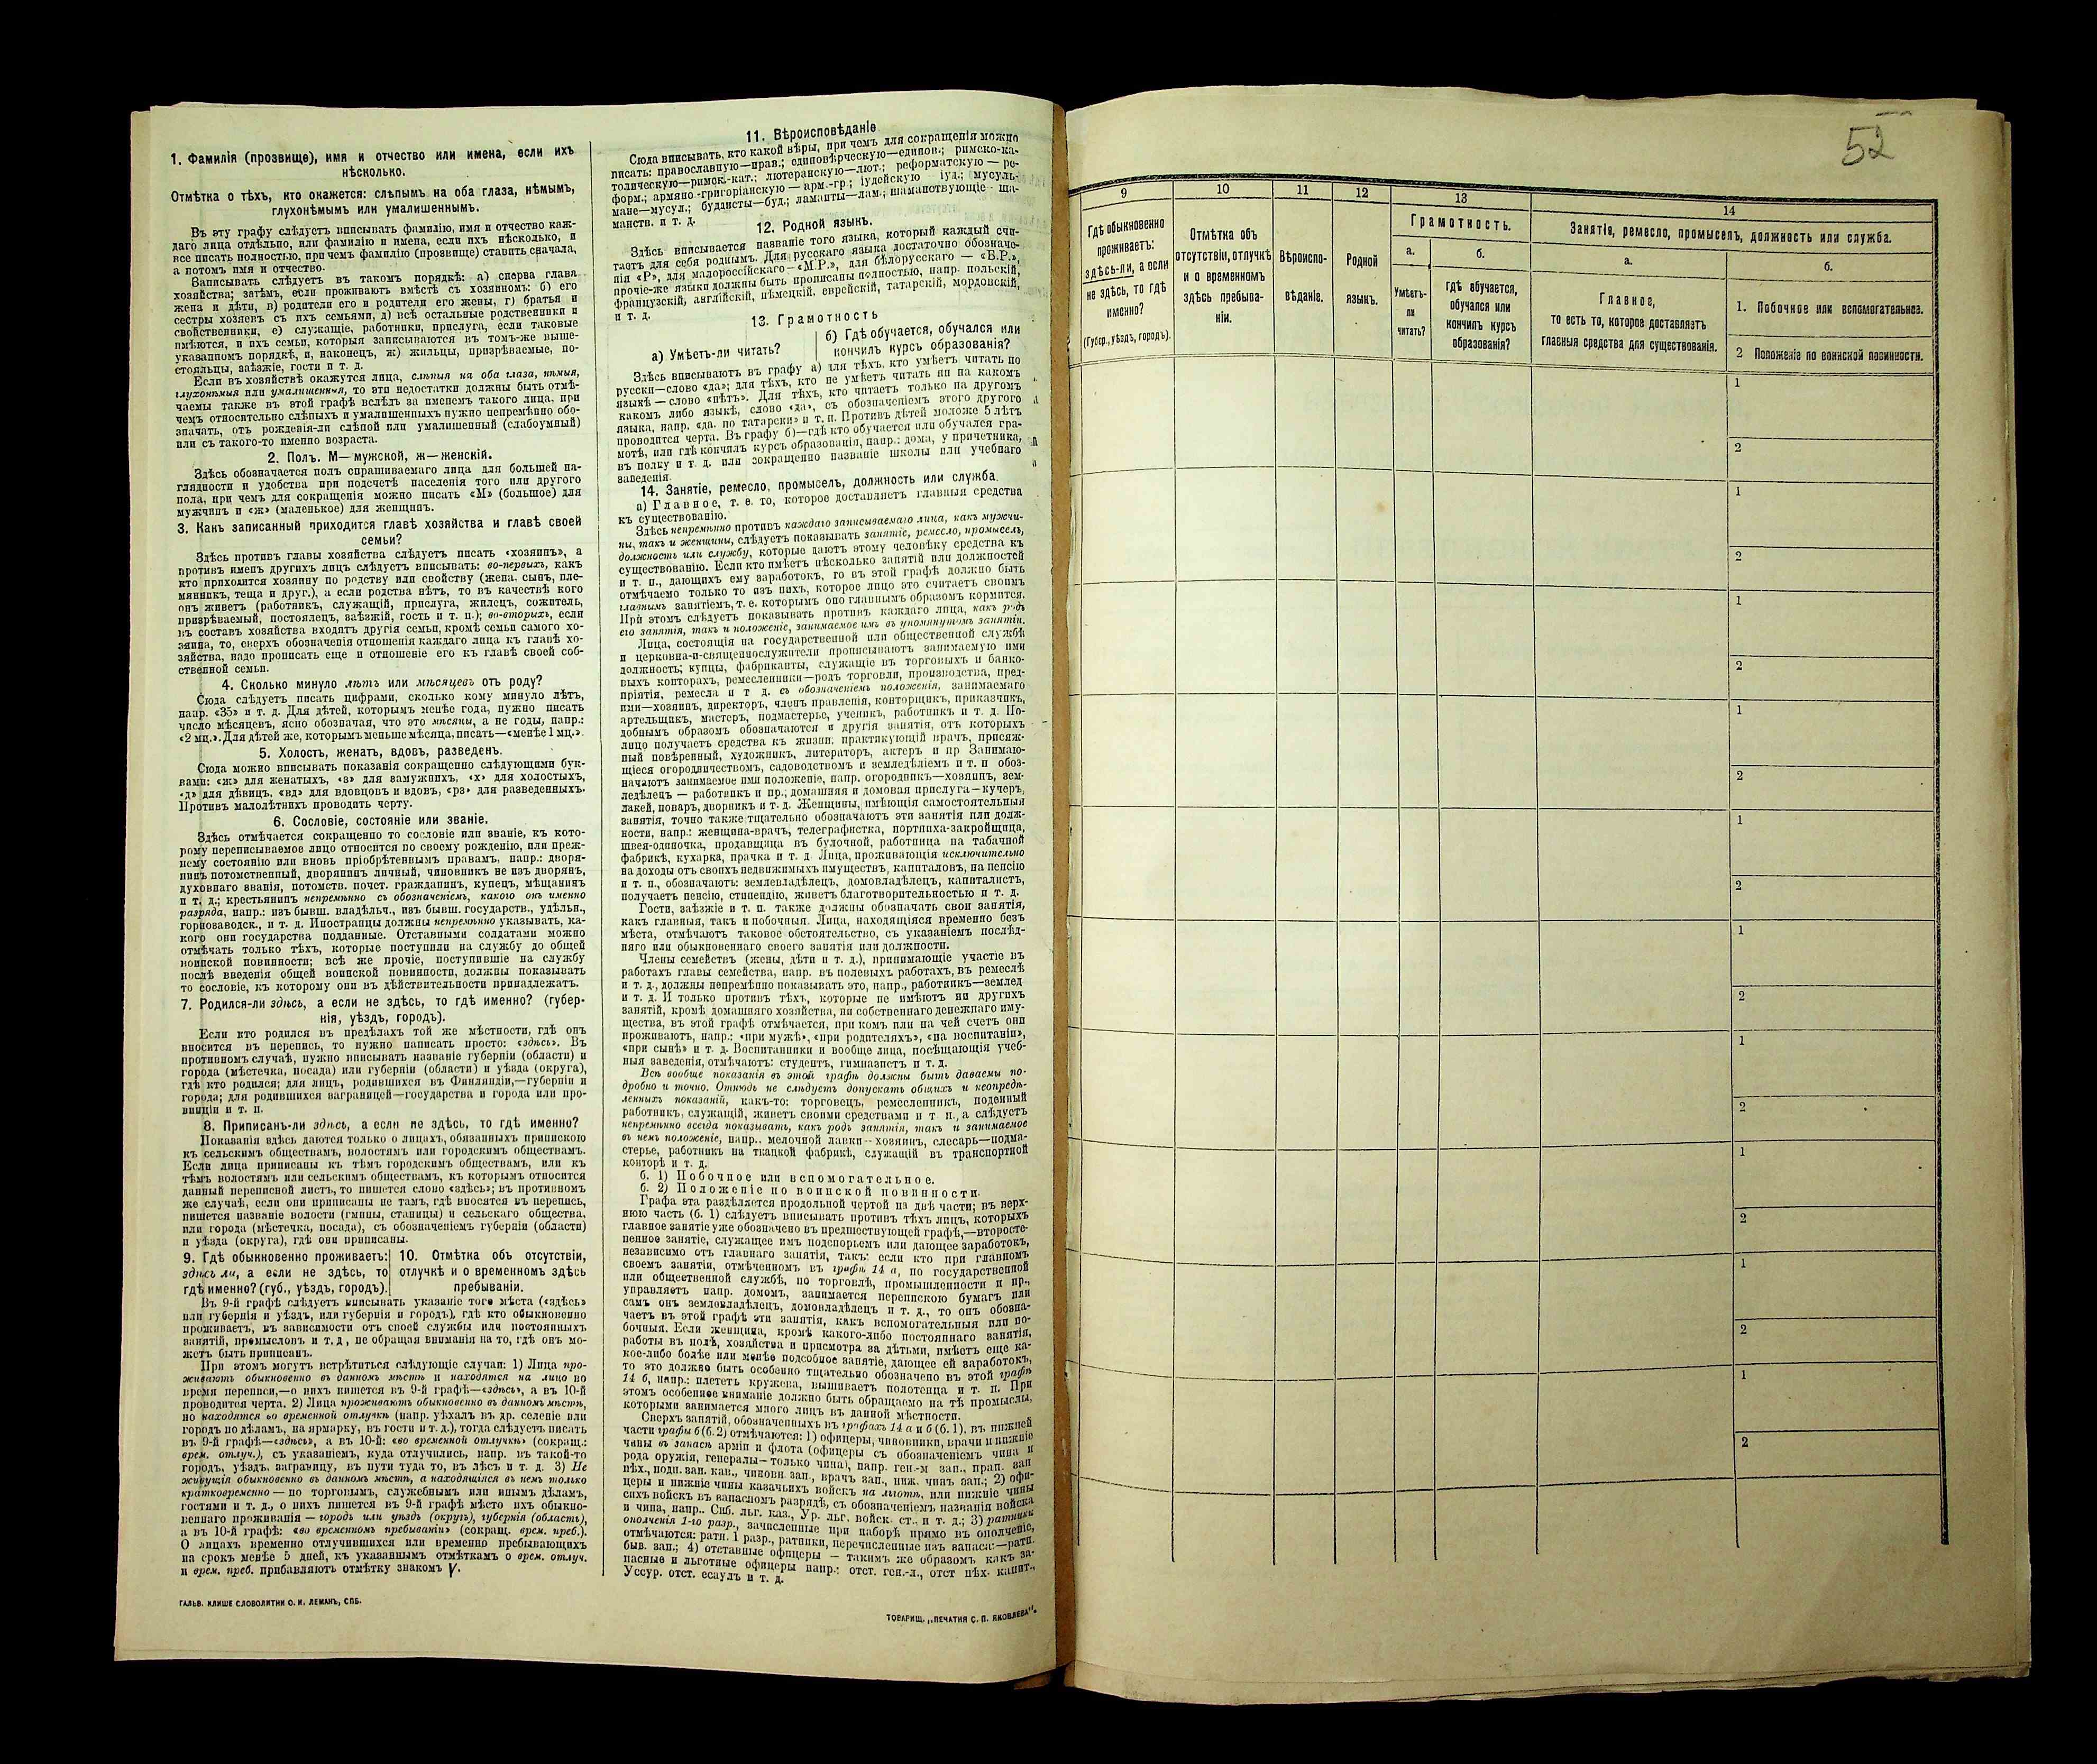 1. Фамилія (прозвище), имя и отчество или имена, если ихъ
нѣсколько.
Отмѣтка о тѣхъ, кто окажется: слѣпымъ на оба глаза, нѣмымъ,
глухонѣмымъ или умалишеннымъ.
Въ эту графу слѣдуетъ вписывать фамилію, имя и отчество каж-
даго лица отдѣльно, или фамилію и имена, если ихъ нѣсколько, и
все писать полностью, при чемъ фамилію (прозвище) ставить сначала,
а потомъ имя и отчество.
Записывать слѣдуетъ въ такомъ порядкѣ: а) сперва глава
хозяйства; затѣмъ, если проживаютъ вмѣстѣ съ хозяиномъ: б) его
жена и дѣти, в) родители его и родители его жены, г) братья и
сестры хозяевъ съ ихъ семьями, д) всѣ остальные родственники и
свойственники, е) служащіе, работники, прислуга, если таковые
имѣются, и ихъ семьи, которыя записываются въ томъ-же выше-
указанномъ порядкѣ, и, наконецъ, ж) жильцы, призрѣваемые, по-
стояльцы, заѣзжіе, гости и т. д.
Если въ хозяйствѣ окажутся лица, слѣпыя на оба глаза, нѣмыя,
глухонѣмыя или умалишенныя, то эти недостатки должны быть отмѣ-
чаемы также въ этой графѣ вслѣдъ за именемъ такого лица, при
чемъ относительно слѣпыхъ и умалишенныхъ нужно непремѣнно обо-
значать, отъ рожденія-ли слѣпой или умалишенный (слабоумный)
или съ такого-то именно возраста.
2. Полъ. М—мужской, ж—женскій.
Здѣсь обозначается полъ спрашиваемаго лица для большей на-
глядности и удобства при подсчетѣ населенія того или другого
пола, при чемъ для сокращенія можно писать «М» (большое) для
мужчинъ и «ж» (маленькое) для женщинъ.
3. Какъ записанный приходится главѣ хозяйства и главѣ своей
семьи?
Здѣсь противъ главы хозяйства слѣдуетъ писать «хозяинъ», а
противъ именъ другихъ лицъ слѣдуетъ вписывать: во-первыхъ, какъ
кто приходится хозяину по родству или свойству (жена, сынъ, пле-
мянникъ, теща и друг.), а если родства нѣтъ, то въ качествѣ кого
онъ живетъ (работникъ, служащій, прислуга, жилецъ, сожитель,
призрѣваемый, постоялецъ, заѣзжій, гость и т. п.); во-вторыхъ, если
въ составъ хозяйства входятъ другія семьи, кромѣ семьи самого хо-
зяина, то, сверхъ обозначенія отношенія каждаго лица къ главѣ хо-
зяйства, надо прописать еще и отношеніе его къ главѣ своей соб-
ственной семьи.
4. Сколько минуло лѣтъ или мѣсяцевъ отъ роду?
Сюда слѣдуетъ писать цифрами, сколько кому минуло лѣтъ,
напр. «35» и т. д. Для дѣтей, которымъ менѣе года, нужно писать
число мѣсяцевъ, ясно обозначая, что это мѣсяцы, а не годы, напр.:
«2 мц.». Для дѣтей же, которымъ меньше мѣсяца, писать—«менѣе 1 мц.».
5. Холостъ, женатъ, вдовъ, разведенъ.
Сюда можно вписывать показанія сокращенно слѣдующими бук-
вами: «ж» для женатыхъ, «з» для замужнихъ, «х» для холостыхъ,
«д» для дѣвицъ, «вд» для вдовцовъ и вдовъ, «рз» для разведенныхъ.
Противъ малолѣтнихъ проводить черту.
6. Сословіе, состояніе или званіе.
Здѣсь отмѣчается сокращенно то сословіе или званіе, къ кото-
рому переписываемое лицо относится по своему рожденію, или преж-
нему состоянію или вновь пріобрѣтеннымъ правамъ, напр.: дворя-
нинъ потомственный, дворянинъ личный, чиновникъ не изъ дворянъ,
духовнаго званія, потомств. почет. гражданинъ, купецъ, мѣщанинъ
и т. д.; крестьянинъ непремѣнно съ обозначеніемъ, какого онъ именно
разряда, напр.: изъ бывш. владѣльч., изъ бывш. государств., удѣльн.,
горнозаводск., и т. д. Иностранцы должны непремѣнно указывать, ка-
кого они государства подданные. Отставными солдатами можно
отмѣчать только тѣхъ, которые поступили на службу до общей
воинской повинности; всѣ же прочіе, поступившіе на службу
послѣ введенія общей воинской повинности, должны показывать
то сословіе, къ которому они въ дѣйствительности принадлежатъ.
7. Родился-ли здѣсь, а если не здѣсь, то гдѣ именно? (губер-
нія, уѣздъ, городъ).
Если кто родился въ предѣлахъ той же мѣстности, гдѣ онъ
вносится въ перепись, то нужно написать просто: «здѣсь». Въ
противномъ случаѣ, нужно вписывать названіе губерніи (области) и
города (мѣстечка, посада) или губерніи (области) и уѣзда (округа),
гдѣ кто родился; для лицъ, родившихся въ Финляндіи,—губерніи и
города; для родившихся заграницей—государства и города или про-
винціи и т. п.
8. Приписанъ-ли здѣсь, а если не здѣсь, то гдѣ именно?
Показанія здѣсь даются только о лицахъ, обязанныхъ припискою
къ сельскимъ обществамъ, волостямъ или городскимъ обществамъ.
Если лица приписаны къ тѣмъ городскимъ обществамъ, или къ
тѣмъ волостямъ или сельскимъ обществамъ, къ которымъ относится
данный переписной листъ, то пишется слово «здѣсь»; въ противномъ
же случаѣ, если они приписаны не тамъ, гдѣ вносятся въ перепись,
пишется названіе волости (гмины, станицы) и сельскаго общества,
или города (мѣстечка, посада), съ обозначеніемъ губерніи (области)
и уѣзда (округа), гдѣ они приписаны.
9. Гдѣ обыкновенно проживаетъ:
здѣсь ли, а если не здѣсь, то
гдѣ именно? (губ., уѣздъ, городъ).
10. Отмѣтка объ отсутствіи,
отлучкѣ и о временномъ здѣсь
пребываніи.
Въ 9-й графѣ слѣдуетъ вписывать указаніе того мѣста («здѣсь»
или губернія и уѣздъ, или губернія и городъ), гдѣ кто обыкновенно
проживаетъ, въ зависимости отъ своей службы или постоянныхъ
занятій, промысловъ и т. д, не обращая вниманія на то, гдѣ онъ мо-
жетъ быть приписанъ.
При этомъ могутъ встрѣтиться слѣдующіе случаи: 1) Лица про-
живаютъ обыкновенно въ данномъ мѣстѣ и находятся на лицо во
время переписи,—о нихъ пишется въ 9-й графѣ—«здѣсь», а въ 10-й
проводится черта. 2) Лица проживаютъ обыкновенно въ данномъ мѣстѣ,
но находятся во временной отлучкѣ (напр. уѣхалъ въ др. селеніе или
городъ по дѣламъ, на ярмарку, въ гости и т. д.), тогда слѣдуетъ писать
въ 9-й графѣ—«здѣсь», а въ 10-й: «во временной отлучкѣ» (сокращ.:
врем. отлуч.), съ указаніемъ, куда отлучились, напр. въ такой-то
городъ, уѣздъ, заграницу, въ пути туда то, въ лѣсъ и т. д. 3) Не
живущія обыкновенно въ данномъ мѣстѣ, а находящіяся въ немъ только
кратковременно — по торговымъ, служебнымъ или инымъ дѣламъ,
гостями и т. д., о нихъ пишется въ 9-й графѣ мѣсто ихъ обыкно-
веннаго проживанія — городъ или уѣздъ (округъ), губернія (область),
а въ 10-й графѣ: «во временномъ пребываніи» (сокращ. врем. преб.).
О лицахъ временно отлучившихся или временно пребывающихъ
на срокъ менѣе 5 дней, къ указаннымъ отмѣткамъ о врем. отлуч.
и врем. преб. прибавляютъ отмѣтку знакомъ V.
ГАЛЬВ. КЛИШЕ СЛОВОЛИТНИ О. И. ЛЕМАНЪ, СПБ.
11. Вѣроисповѣданіе
Сюда вписывать, кто какой вѣры, при чемъ для сокращенія можно
писать: православную—прав.; единовѣрческую—единов.; римско-ка-
толическую—римск.-кат.; лютеранскую—лют.; реформатскую — ре-
форм.; армяно-григоріанскую — арм.-гр; іудейскую іуд.; мусуль-
мане—мусул.; буддисты—буд.; ламаиты—лам.; шаманствующіе - ша-
манств. и т. д.
12. Родной языкъ.
Здѣсь вписывается названіе того языка, который каждый счи-
таетъ для себя роднымъ. Для русскаго языка достаточно обозначе-
нія «Р», для малороссійскаго—«М.Р.», для бѣлорусскаго — «Б.Р.»,
прочіе-же языки должны быть прописаны полностью, напр. польскій,
французскій, англійскій, нѣмецкій, еврейскій, татарскій, мордовскій,
и т. д.
13. Грамотность
а) Умѣетъ-ли читать?
б) Гдѣ обучается, обучался или
кончилъ курсъ образованія?
Здѣсь вписываютъ въ графу а) для тѣхъ, кто умѣетъ читать по
русски—слово «да»; для тѣхъ, кто не умѣетъ читать ни на какомъ
языкѣ—слово «нѣтъ». Для тѣхъ, кто читаетъ только на другомъ
какомъ либо языкѣ, слово «да», съ обозначеніемъ этого другого
языка, напр. «да, по татарски» и т. п. Противъ дѣтей моложе 5 лѣтъ
проводится черта. Въ графу б)—гдѣ кто обучается или обучался гра-
мотѣ, или гдѣ кончилъ курсъ образованія, напр.: дома, у причетника,
въ полку и т. д. или сокращенно названіе школы или учебнаго
заведенія.
14. Занятіе, ремесло, промыселъ, должность или служба.
а) Главное, т. е. то, которое доставляетъ главныя средства
къ существованію.
Здѣсь непремѣнно противъ каждаго записываемаго лица, какъ мужчи-
ны, такъ и женщины, слѣдуетъ показывать занятіе, ремесло, промыселъ,
должность или службу, которые даютъ этому человѣку средства къ
существованію. Если кто имѣетъ нѣсколько занятій или должностей
и т. п., дающихъ ему заработокъ, то въ этой графѣ должно быть
отмѣчаемо только то изъ нихъ, которое лицо это считаетъ своимъ
главнымъ занятіемъ, т. е. которымъ оно главнымъ образомъ кормится.
При этомъ слѣдуетъ показывать противъ каждаго лица, какъ родъ
его занятія, такъ и положеніе, занимаемое имъ въ упомянутомъ занятіи.
Лица, состоящія на государственной или общественной службѣ
и церковно-и-священнослужители прописываютъ занимаемую ими
должность; купцы, фабриканты, служащіе въ торговыхъ и банко-
выхъ конторахъ, ремесленники—родъ торговли, производства, пред-
пріятія, ремесла и т д. съ обозначеніемъ положенія, занимаемаго
ими—хозяинъ, директоръ, членъ правленія, конторщикъ, приказчикъ,
артельщикъ, мастеръ, подмастерье, ученикъ, работникъ и т. д. По-
добнымъ образомъ обозначаются и другія занятія, отъ которыхъ
лицо получаетъ средства къ жизни: практикующій врачъ, присяж-
ный повѣренный, художникъ, литераторъ, актеръ и пр Занимаю-
щіеся огородничествомъ, садоводствомъ и земледѣліемъ и т. п обоз-
начаютъ занимаемое ими положеніе, напр. огородникъ—хозяинъ, зем-
ледѣлецъ — работникъ и пр.; домашняя и домовая прислуга—кучеръ,
лакей, поваръ, дворникъ и т. д. Женщины, имѣющія самостоятельныя
занятія, точно также тщательно обозначаютъ эти занятія или долж-
ности, напр.: женщина-врачъ, телеграфистка, портниха-закройщица,
швея-одиночка, продавщица въ булочной, работница на табачной
фабрикѣ, кухарка, прачка и т. д Лица, проживающія исключительно
на доходы отъ своихъ недвижимыхъ имуществъ, капиталовъ, на пенсію
и т. п., обозначаютъ: землевладѣлецъ, домовладѣлецъ, капиталистъ,
получаетъ пенсію, стипендію, живетъ благотворительностью и т. д.
Гости, заѣзжіе и т. п. также должны обозначать свои занятія,
какъ главныя, такъ и побочныя. Лица, находящіяся временно безъ
мѣста, отмѣчаютъ таковое обстоятельство, съ указаніемъ послѣд-
няго или обыкновеннаго своего занятія или должности.
Члены семействъ (жены, дѣти и т. д.), принимающіе участіе въ
работахъ главы семейства, напр. въ полевыхъ работахъ, въ ремеслѣ
и т. д., должны непремѣнно показывать это, напр., работникъ—землед
и т. д. И только противъ тѣхъ, которые не имѣютъ ни другихъ
занятій, кромѣ домашняго хозяйства, ни собственнаго денежнаго иму-
щества, въ этой графѣ отмѣчается, при комъ или на чей счетъ они
проживаютъ, напр.: «при мужѣ», «при родителяхъ», «на воспитаніи»,
«при сынѣ» и т. д. Воспитанники и вообще лица, посѣщающія учеб-
ныя заведенія, отмѣчаютъ: студентъ, гимназистъ и т. д.
Всѣ вообще показанія въ этой графѣ должны быть даваемы по-
дробно и точно. Отнюдь не слѣдуетъ допускать общихъ и неопредѣ-
ленныхъ показаній, какъ-то: торговецъ, ремесленникъ, поденный
работникъ, служащій, живетъ своими средствами и т п., а слѣдуетъ
непремѣнно всегда показывать, какъ родъ занятія, такъ и занимаемое
въ немъ положеніе, напр.. мелочной лавки--хозяинъ, слесарь—подма-
стерье, работникъ на ткацкой фабрикѣ, служащій въ транспортной
конторѣ и т. д.
б. 1) Побочное или вспомогательное.
б. 2) Положеніе по воинской повинности.
Графа эта раздѣляется продольной чертой на двѣ части; въ верх-
нюю часть (б. 1) слѣдуетъ вписывать противъ тѣхъ лицъ, которыхъ
главное занятіе уже обозначено въ предшествующей графѣ,—второсте-
пенное занятіе, служащее имъ подспорьемъ или дающее заработокъ,
независимо отъ главнаго занятія, такъ: если кто при главномъ
своемъ занятіи, отмѣченномъ въ графѣ 14 а, по государственной
или общественной службѣ, по торговлѣ, промышленности и пр.,
управляетъ напр. домомъ, занимается перепискою бумагъ или
самъ онъ землевладѣлецъ, домовладѣлецъ и т. д., то онъ обозна-
чаетъ въ этой графѣ эти занятія, какъ вспомогательныя или по-
бочныя. Если женщина, кромѣ какого-либо постояннаго занятія,
работы въ полѣ, хозяйства и присмотра за дѣтьми, имѣетъ еще ка-
кое-либо болѣе или менѣе подсобное занятіе, дающее ей заработокъ,
то это должно быть особенно тщательно обозначено въ этой графѣ
14 б, напр.: плететъ кружева, вышиваетъ полотенца и т. п. При
этомъ особенное вниманіе должно быть обращаемо на тѣ промыслы,
которыми занимается много лицъ въ данной мѣстности.
Сверхъ занятій, обозначенныхъ въ графахъ 14 а и б (б. 1), въ нижней
части графы б (б. 2) отмѣчаются: 1) офицеры, чиновники, врачи и нижніе
чины въ запасѣ арміи и флота (офицеры съ обозначеніемъ чина и
рода оружія, генералы—только чина), напр. ген.-м зап., прап. зап
пѣх., подп. зап. кав., чиновн. зап., врачъ зап., ниж. чинъ зап.; 2) офи-
церы и нижніе чины казачьихъ войскъ на льготѣ, или нижніе чины
сихъ войскъ въ запасномъ разрядѣ, съ обозначеніемъ названія войска
и чина, напр.. Сиб. льг. каз., Ур. льг. войск. ст., и т. д.; 3) ратники
ополченія 1-го разр., зачисленные при наборѣ прямо въ ополченіе,
отмѣчаются: ратн. 1 разр., ратники, перечисленные изъ запаса:—ратн.
быв. зап.; 4) отставные офицеры — такимъ же образомъ какъ за-
пасные и льготные офицеры напр.: отст. ген.-л., отст пѣх. капит.,
Уссур. отст. есаулъ и т. д.
ТОВАРИЩ. „ПЕЧАТНЯ С. П. ЯКОВЛЕВА".
52
9
10
11
12
13
14
Гдѣ обыкновенно
проживаетъ:
здѣсь-ли, а если
не здѣсь, то гдѣ
именно?
(Губер., уѣздъ, городъ).
Отмѣтка объ
отсутствіи, отлучкѣ
и о временномъ
здѣсь пребыва-
ніи.
Вѣроиспо-
вѣданіе.
Родной
языкъ.
Грамотность.
а.
Умѣетъ-
ли
читать?
б.
гдѣ обучается,
обучался или
кончилъ курсъ
образованія?
Занятіе, ремесло, промыселъ, должность или служба.
а.
Главное,
то есть то, которое доставляетъ
главныя средства для существованія.
б.
1. Побочное или вспомогательное.
2 Положеніе по воинской повинности.
1
2
1
2
1
2
1
2
1
2
1
2
1
2
1
2
1
2
1
2